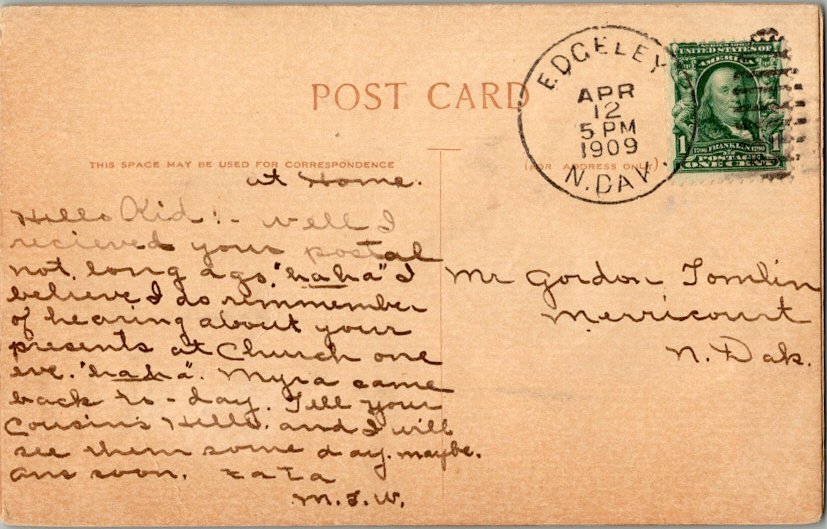 POST CARD
THIS SPACE MAY BE USED FOR CORRESPONDENCE
(FOR ADDRESS ONLY)
EDGELEY
APR
12
5 PM
1909
N. DAK.
SERIES 1902
UNITED STATES OF
AMERICA
1 1
FRANKLIN
POSTAGE
ONE CENT
at Home.
Hello Kid:- well I
recieved your postal
not long ago, "haha" I
believe I do rimmember
of hearing about your
presents at Church one
eve. "haha". Myra came
back to-day. Tell your
Cousins Hello, and I will
see them some day. maybe.
ans soon. tata
M.J.W.
Mr Gordon Tomlin
Merricourt
N. Dak.